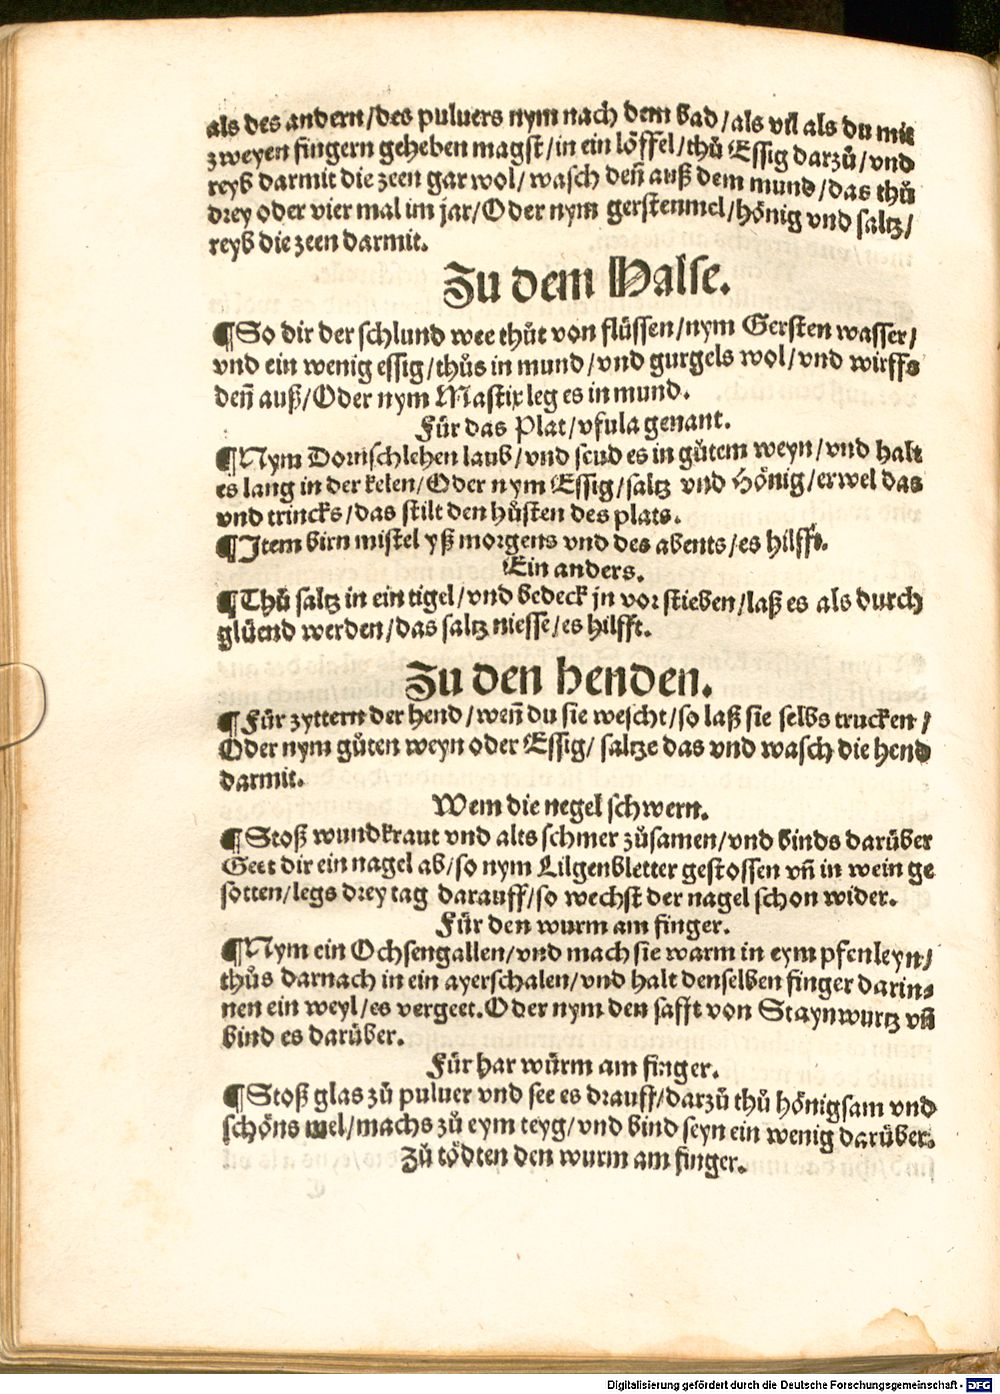 als des andern/des puluers nym nach dem bad/als vil als du mit
zweyen fingern geheben magst/in ein löffel/thů Essig darzů/vnd
reyb darmit die zeen gar wol/wasch deñ auß dem mund/das thů
drey oder vier mal im jar/Oder nym gerstenmel/hönig vnd saltz/
reyb die zeen darmit.
Zu dem Halse.
¶So dir der schlund wee thůt von flüssen/nym Gersten wasser/
vnd ein wenig essig/thůs in mund/vnd gurgels wol/vnd wirffs
deñ auß/Oder nym Mastix leg es in mund.
Für das Plat/vfula genant.
¶Nym Dornschlehen laub/vnd seud es in gůtem weyn/vnd halt
es lang in der kelen/Oder nym Essig/saltz vnd Hönig/erwel das
vnd trincks/das stilt den hůsten des plats.
¶Item birn mistel yß morgens vnd des abents/es hilfft.
Ein anders.
¶Thů saltz in ein tigel/vnd bedeck jn vor stieben/laß es als durch
glüend werden/das saltz niesse/es hilfft.
Zu den henden.
¶Für zyttern der hend/weñ du sie wescht/so laß sie selbs trucken/
Oder nym gůten weyn oder Essig/saltze das vnd wasch die hend
darmit.
Wem die negel schwern.
¶Stoß wundkraut vnd alts schmer zůsamen/vnd binds darüber
Geet dir ein nagel ab/so nym Lilgenbletter gestossen vñ in wein ge
sotten/legs drey tag darauff/so wechst der nagel schon wider.
Für den wurm am finger.
¶Nym ein Ochsengallen/vnd mach sie warm in eym pfenleyn/
thůs darnach in ein ayerschalen/vnd halt denselben finger darin⸗
nen ein weyl/es vergeet.Oder nym den safft von Staynwurtz vñ
bind es darüber.
Für har würm am finger.
¶Stoß glas zů puluer vnd see es drauff/darzů thů hönigsam vnd
schöns mel/machs zů eym teyg/vnd bind seyn ein wenig darüber.
Zů tödten den wurm am finger.
Digitalisierung gefördert durch die Deutsche Forschungsgemeinschaft - DFG